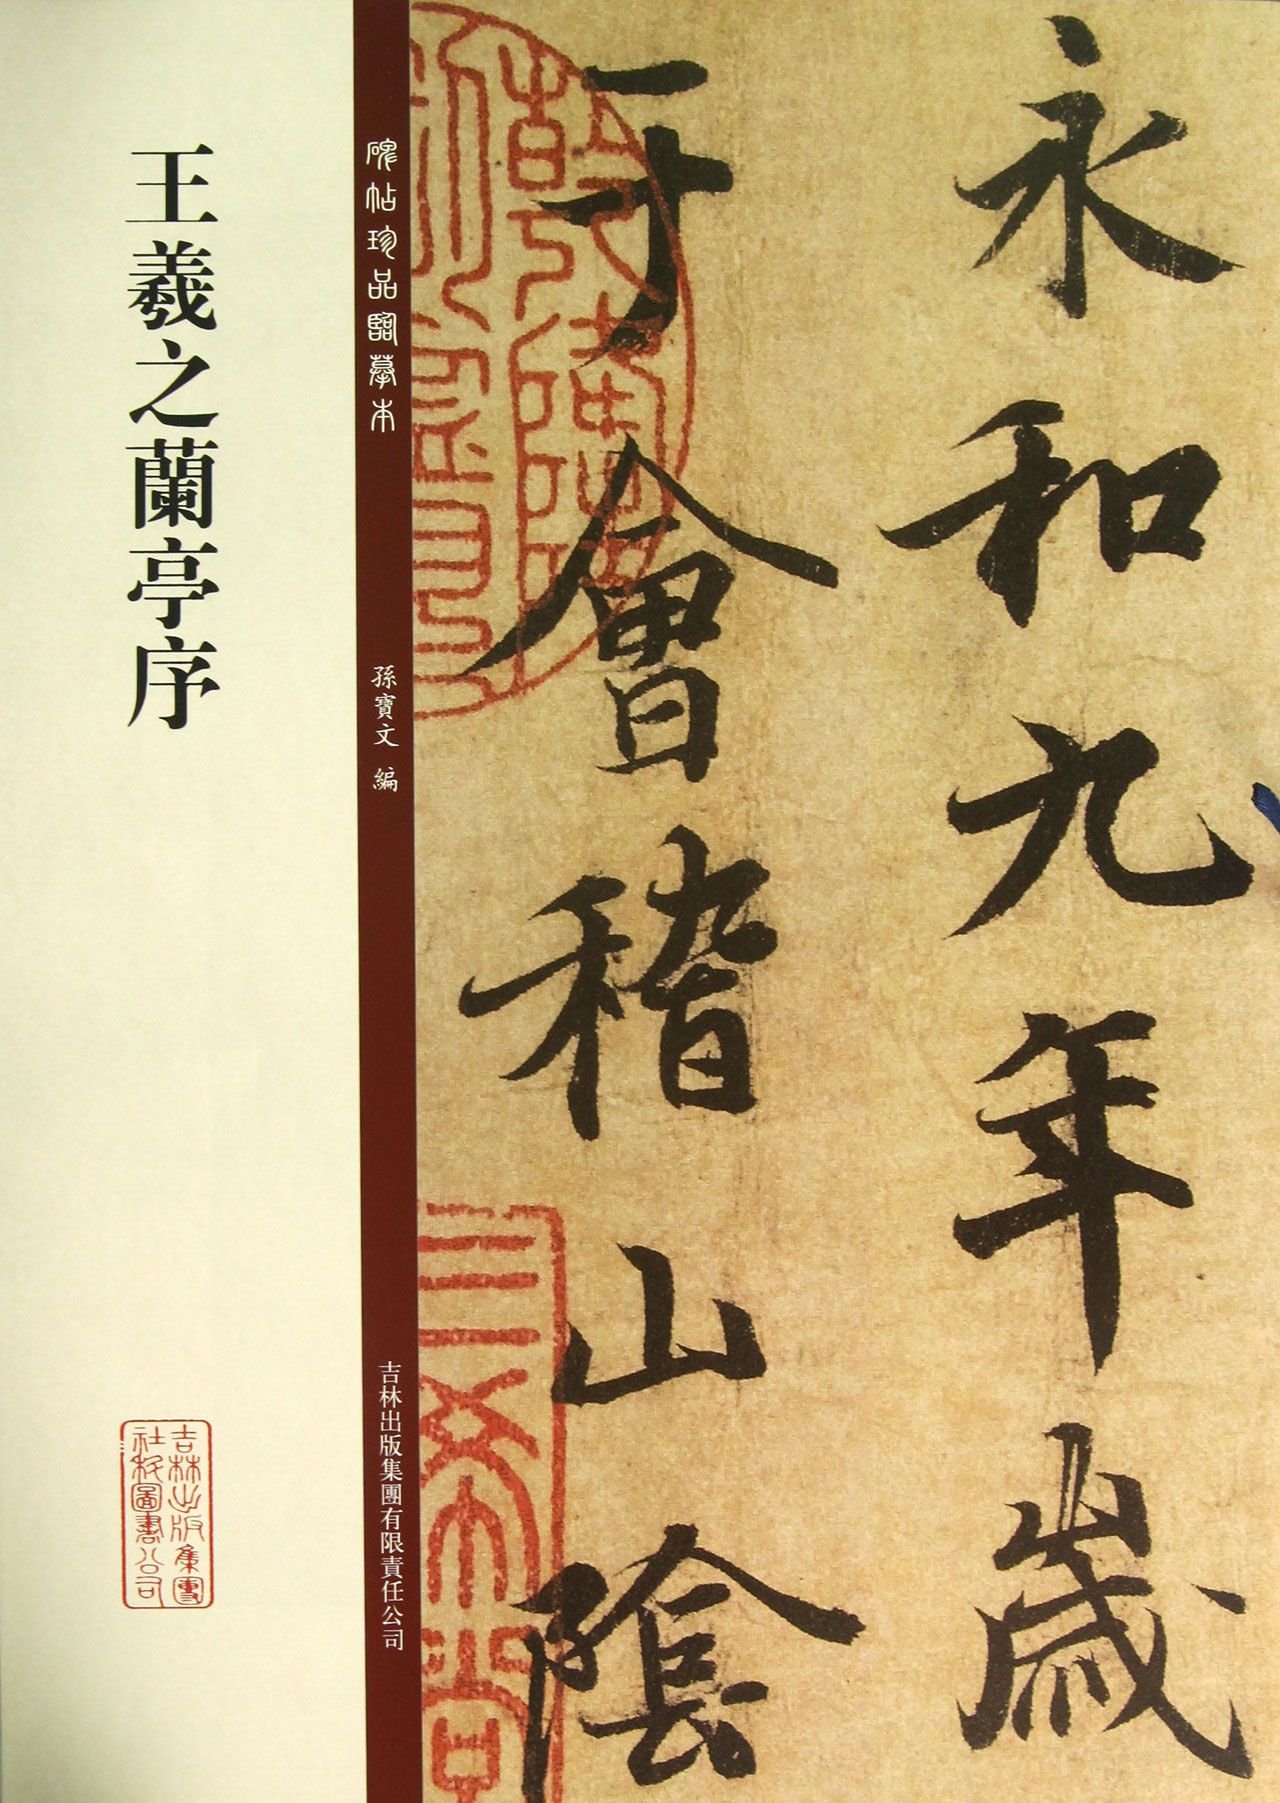 永和九年歲
于會稽山陰
碑帖珍品臨摹本
孫寶文 編
吉林出版集團有限責任公司
王羲之蘭亭序
吉林出版集團
社科圖書公司